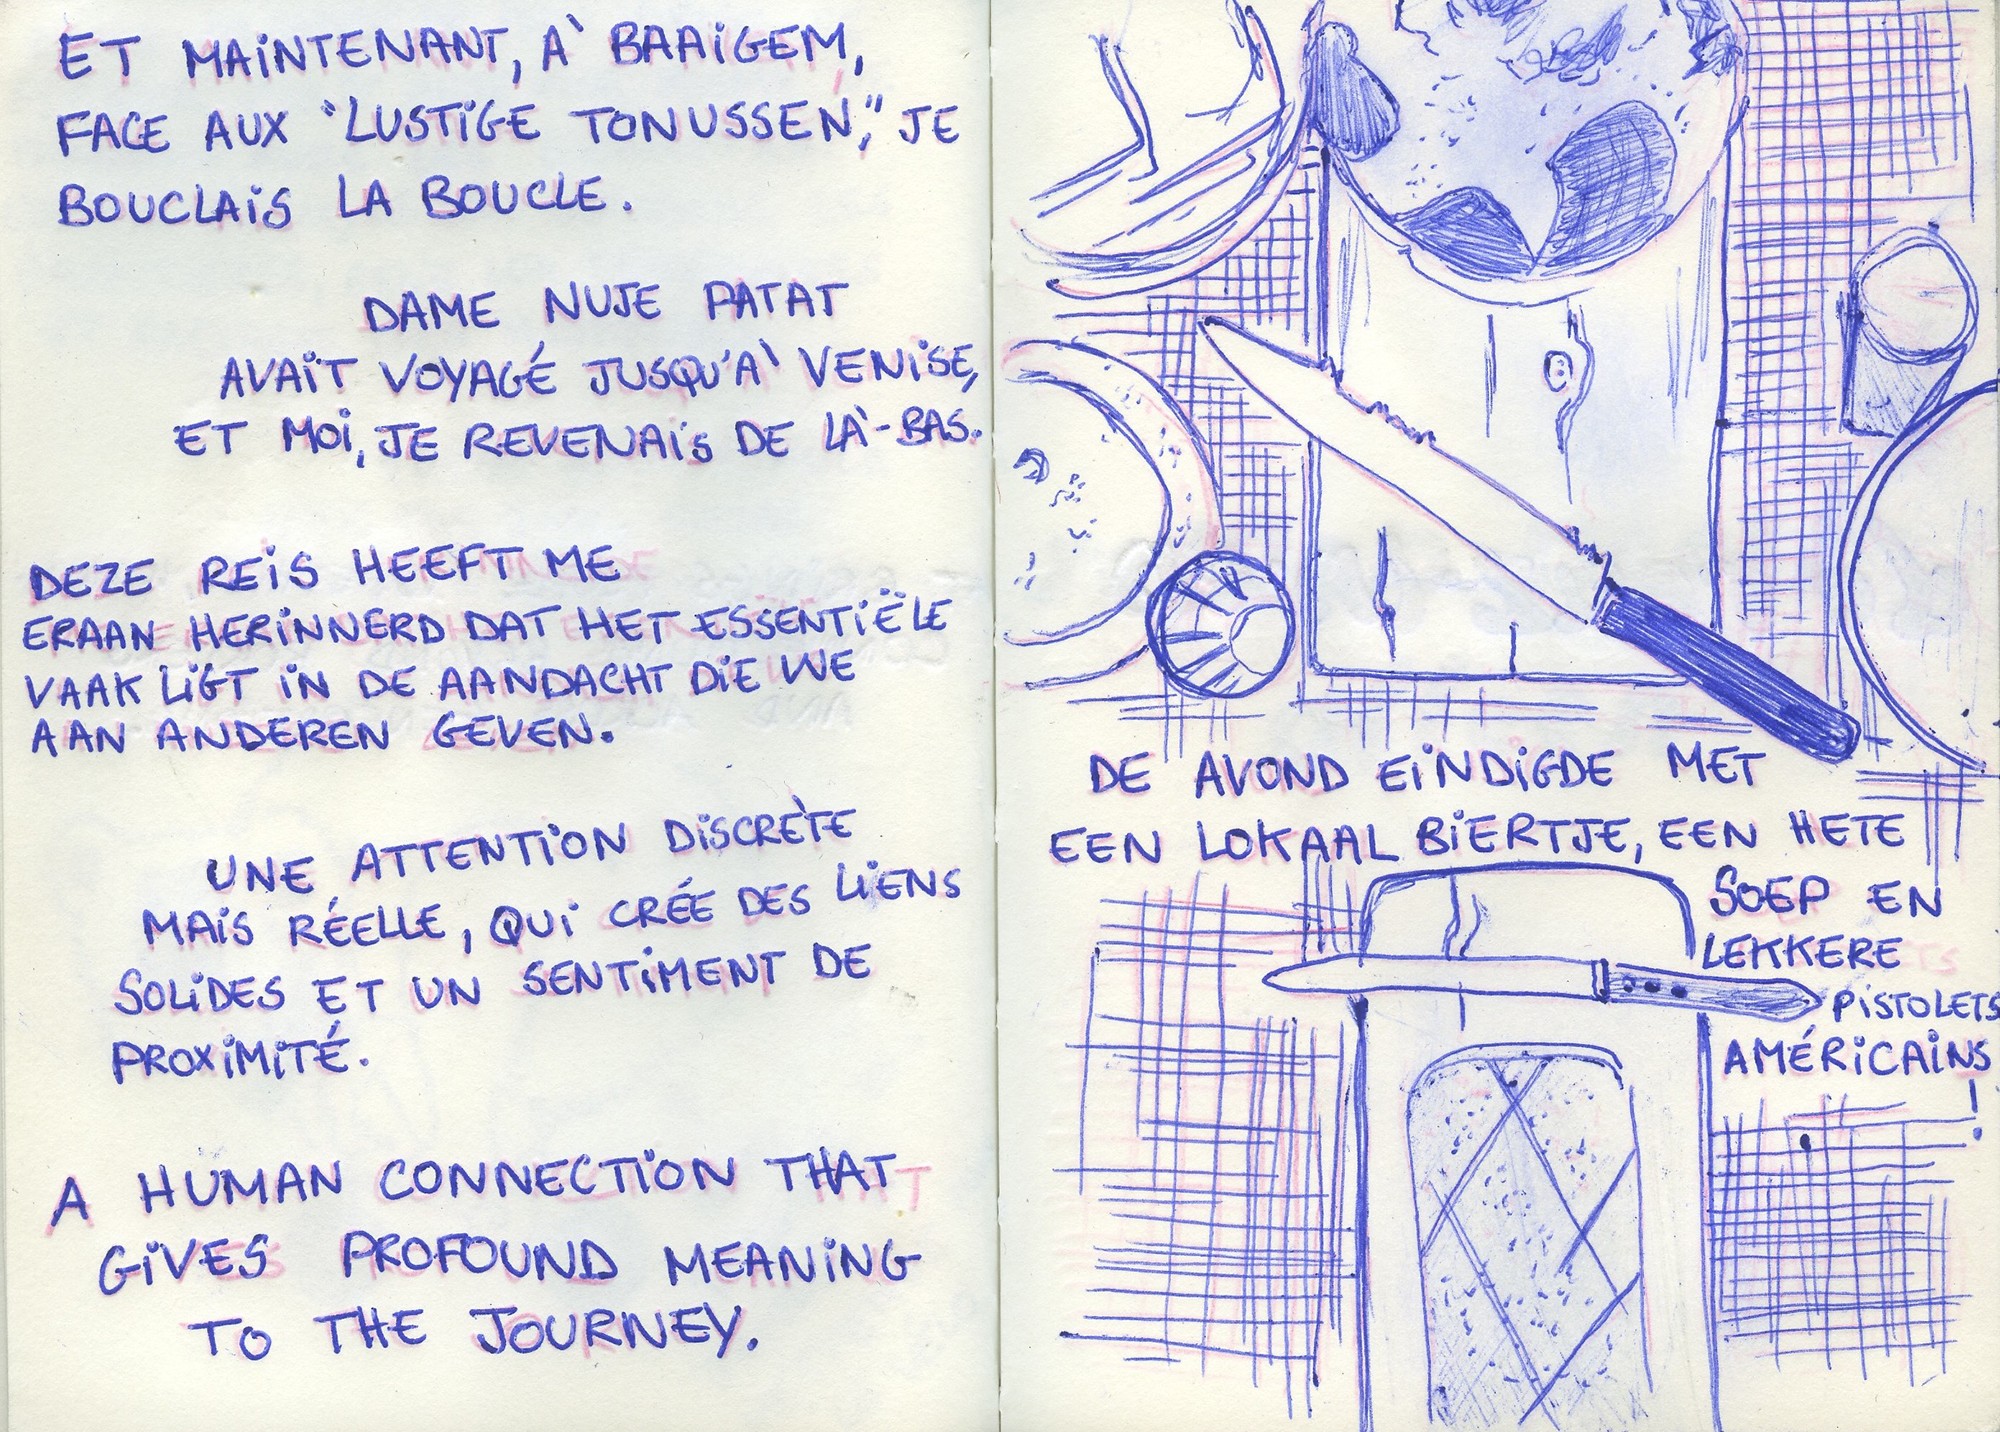 ET MAINTENANT, À BAAIGEM,
FACE AUX "LUSTIGE TONUSSEN," JE
BOUCLAIS LA BOUCLE.
DAME NUJE PATAT
AVAIT VOYAGÉ JUSQU'À VENISE,
ET MOI, JE REVENAIS DE LÀ-BAS.
DEZE REIS HEEFT ME
ERAAN HERINNERD DAT HET ESSENTIËLE
VAAK LIGT IN DE AANDACHT DIE WE
AAN ANDEREN GEVEN.
UNE ATTENTION DISCRÈTE
MAIS RÉELLE, QUI CRÉE DES LIENS
SOLIDES ET UN SENTIMENT DE
PROXIMITÉ.
A HUMAN CONNECTION THAT
GIVES PROFOUND MEANING
TO THE JOURNEY.
DE AVOND EINDIGDE MET
EEN LOKAAL BIERTJE, EEN HETE
SOEP EN
LEKKERE
PISTOLETS
AMÉRICAINS
!